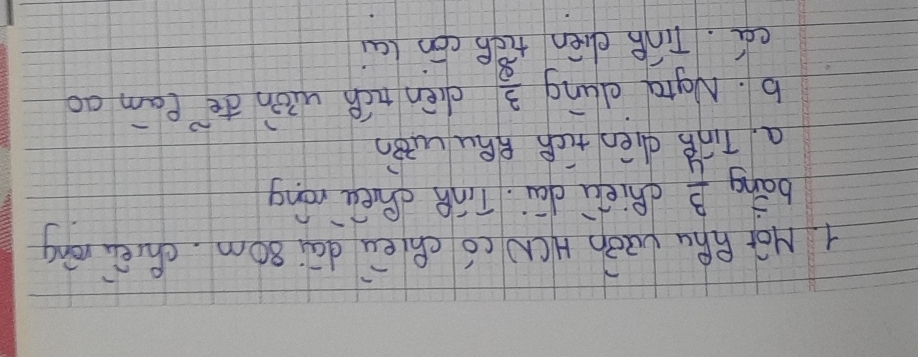 1. Một khu vườn HCN có chiều dài 80m. chiều rộng
bằng 3/4 chiều dài. Tính chiều rộng
a. Tính diện tích khu vườn
b. Người dùng 3/8 diện tích vườn để làm ao
cá. Tính diện tích còn lại